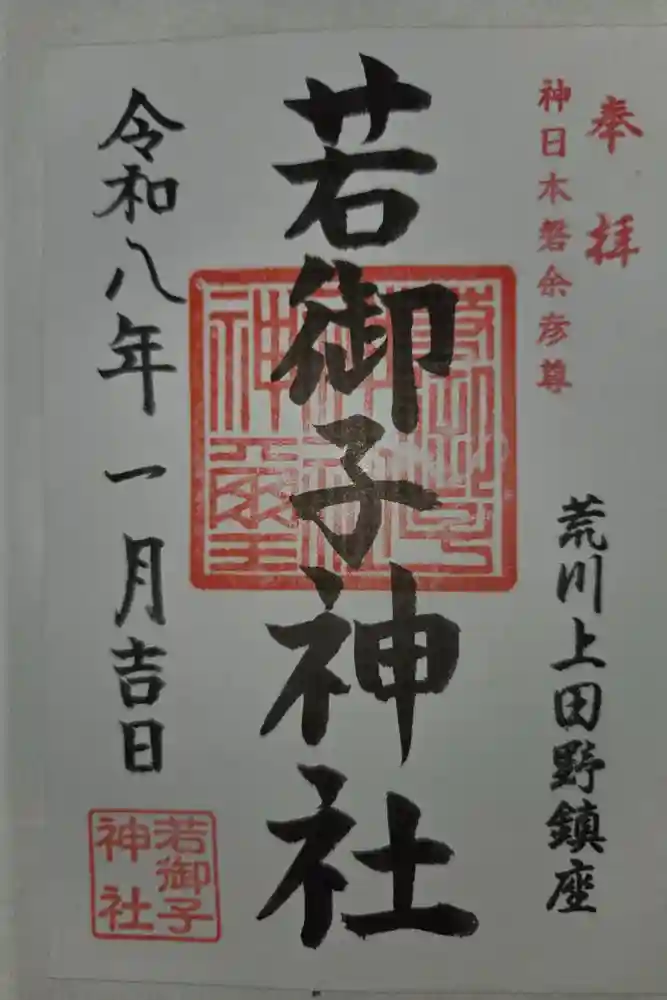 奉拝
神日本磐余彦尊
荒川上田野鎮座
若御子神社
若御子神社神璽
令和八年一月吉日
若御子
神社